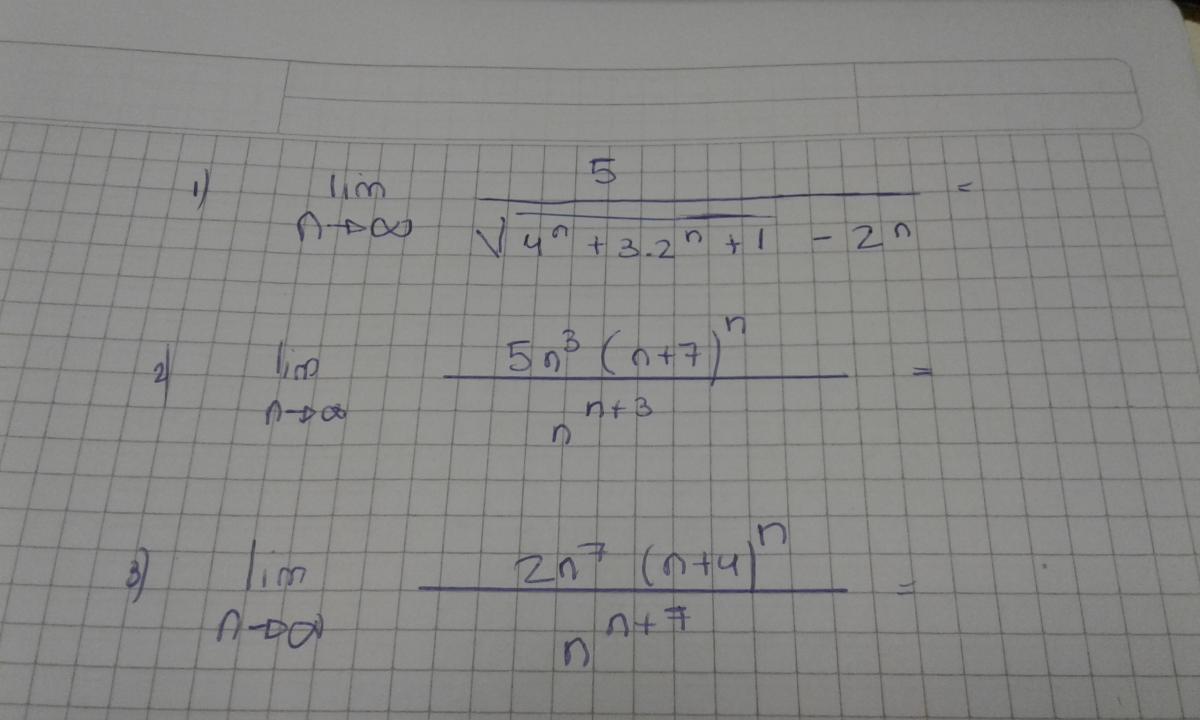 1) lim n→∞ 5 / (√(4ⁿ + 3.2ⁿ + 1) - 2ⁿ) =
2) lim n→∞ 5n³ (n+7)ⁿ / nⁿ⁺³ =
3) lim n→∞ 2n⁷ (n+4)ⁿ / nⁿ⁺⁷ =